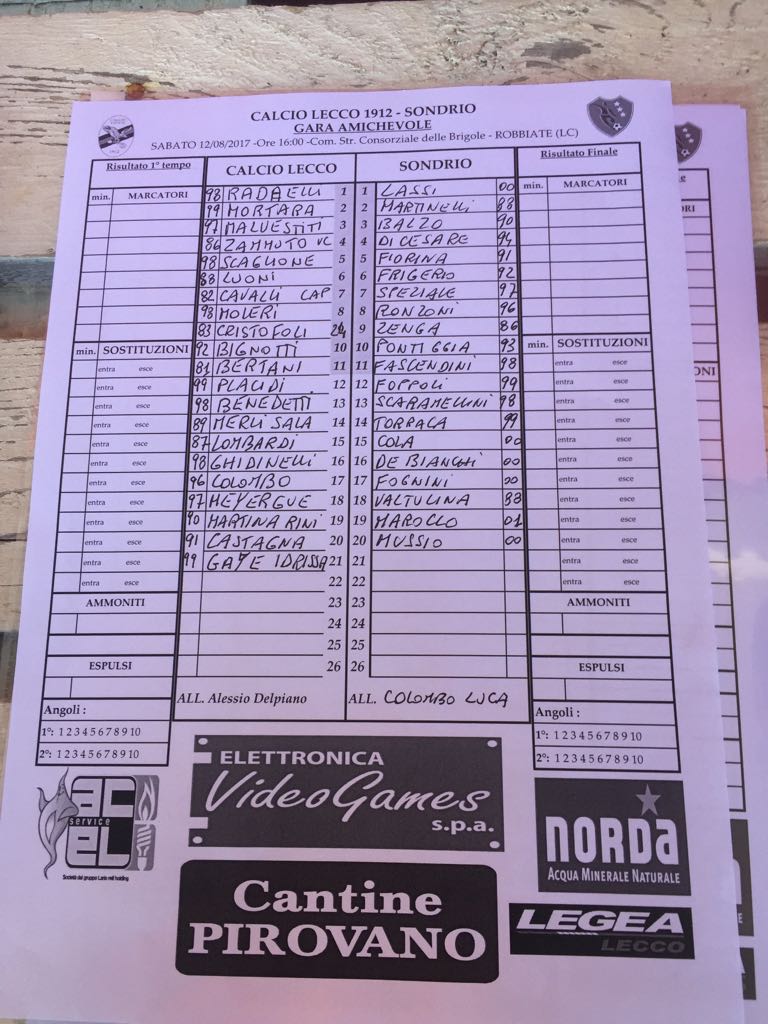 CALCIO LECCO 1912 - SONDRIO
GARA AMICHEVOLE
SABATO 12/08/2017 -Ore 16:00 -Com. Str. Consorziale delle Brigole - ROBBIATE (LC)
Risultato 1° tempo CALCIO LECCO SONDRIO Risultato Finale
min. MARCATORI 98 RADAELLI 1 1 LASSI 00 min. MARCATORI
99 MORTARA 2 2 MARTINELLI 88
97 MALVESTITI 3 3 BALZO 90
86 ZAMMUTO VC 4 4 DI CESARE 94
98 SCAGLIONE 5 5 FIORINA 91
88 LUONI 6 6 FRIGERIO 92
82 CAVALLI CAP 7 7 SPEZIALE 97
98 MOLERI 8 8 RONZONI 96
83 CRISTOFOLI 24 9 ZENGA 86
min. SOSTITUZIONI 92 BIGNOTTI 10 10 PONTIGGIA 93 min. SOSTITUZIONI
entra esce 81 BERTANI 11 11 FASCENDINI 98 entra esce
entra esce 99 PLAUDI 12 12 FOPPOLI 99 entra esce
entra esce 98 BENEDETTI 13 13 SCARAMELLINI 98 entra esce
entra esce 89 MERLI SALA 14 14 TORRACA 99 entra esce
entra esce 87 LOMBARDI 15 15 COLA 00 entra esce
entra esce 98 GHIDINELLI 16 16 DE BIANCHI 00 entra esce
entra esce 96 COLOMBO 17 17 FOGNINI 00 entra esce
entra esce 97 MEYERGUE 18 18 VALTULINA 88 entra esce
entra esce 90 MARTINA RINI 19 19 MAROCCO 01 entra esce
entra esce 91 CASTAGNA 20 20 MUSSIO 00 entra esce
entra esce 99 GAYE IDRISSA 21 21 entra esce
entra esce 22 22 entra esce
AMMONITI 23 23 AMMONITI
24 24
25 25
ESPULSI 26 26 ESPULSI
ALL. Alessio Delpiano ALL. COLOMBO LUCA
Angoli : Angoli :
1°: 1 2 3 4 5 6 7 8 9 10 1°: 1 2 3 4 5 6 7 8 9 10
2°: 1 2 3 4 5 6 7 8 9 10 2°: 1 2 3 4 5 6 7 8 9 10
ac service el
Società del gruppo Lario reti holding
ELETTRONICA
VideoGames
s.p.a.
NORDA
ACQUA MINERALE NATURALE
Cantine
PIROVANO
LEGEA
LECCO